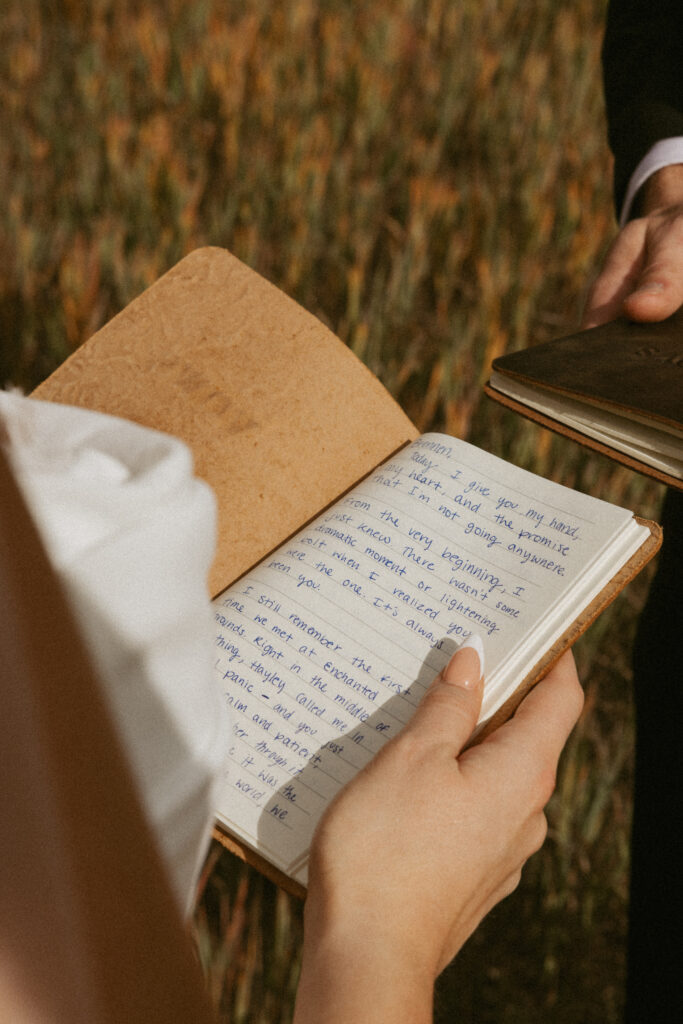 Brennon,
Today I give you my hand,
my heart, and the promise
that I'm not going anywhere.
From the very beginning, I
just knew. There wasn't some
dramatic moment or lightening
bolt when I realized you
were the one. It's always
been you.
I still remember the first
time we met at Enchanted
Right in the middle of
thing, Hayley called me in
panic – and you just
calm and patient,
her through it.
it was the
world we